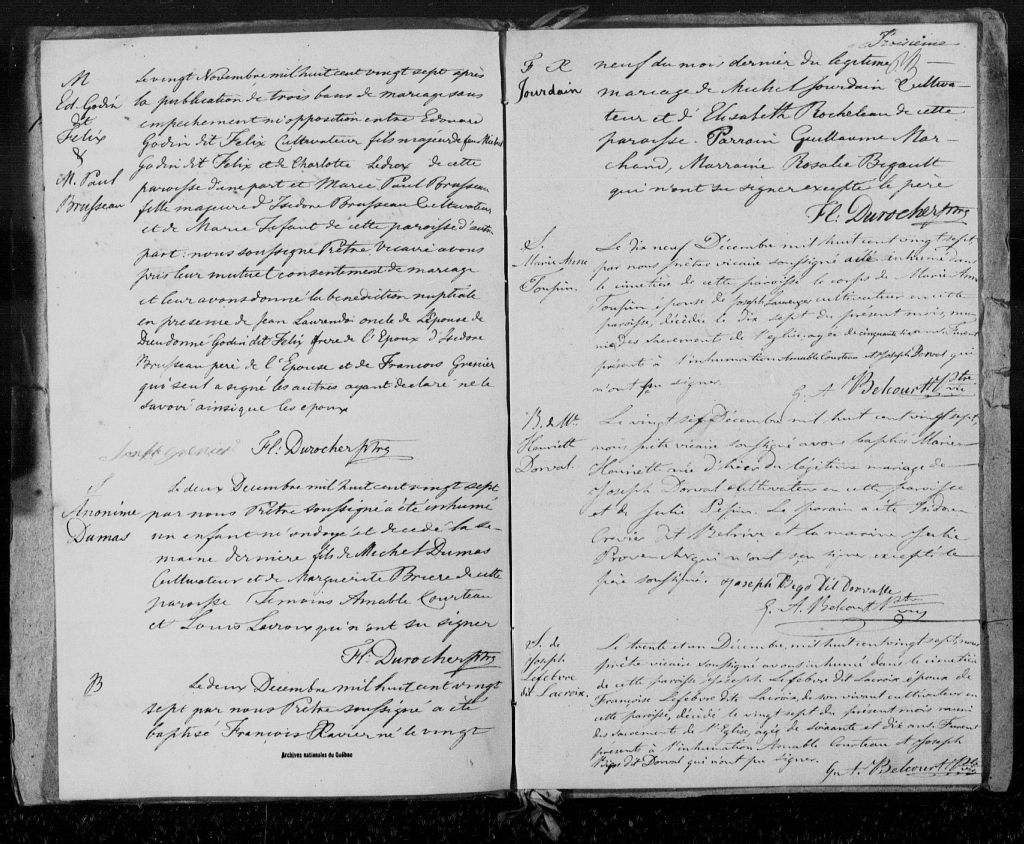 M
Ed. Godin
dit
Felix
&
M. Paul
Brusseau
Le vingt Novembre mil huit cent vingt sept après
la publication de trois bans de mariage sans
empechement ni opposition entre Edouard
Godin dit Felix Cultivateur fils majeur de feu Michel
Godin dit Felix et de Charlotte Ledoux de cette
paroisse d'une part et Marie Paul Brusseau
fille majeure d'Isidore Brusseau Cultivateur
et de Marie Lefant de cette paroisse d'autre
part: nous soussigné Prêtre Vicaire avons
pris leur mutuel consentement de mariage
et leur avons donné la benediction nuptiale
en presence de Jean Laurendo oncle de l'Epouse de
Dieudonné Godin dit Felix frere de l'Epoux d'Isidore
Brusseau pere de l'Epouse et de Francois Grenier
qui seul a signé les autres ayant declaré ne le
savoir ainsi que les epoux
grenier Fl: Durocher ptre
S
Anonime
Dumas
Le deux Decembre mil huit cent vingt sept
par nous Prêtre soussigné a été inhumé
un enfant né ondoyé et decedé la se-
maine derniere fils de Michel Dumas
Cultivateur et de Marguerite Briere de cette
paroisse Temoins Amable Courteau
et Louis Lacroix qui n'ont su signer
Fl: Durocher ptre
B
Le deux Decembre mil huit cent vingt
sept par nous Prêtre soussigné a eté
baptisé François Xavier né le vingt
Archives nationales du Québec
Troisième
F X
Jourdain
neuf du mois dernier du légitime
mariage de Michel Jourdain Cultiva-
teur et d' Elisabeth Rocheleau de cette
paroisse. Parrain Guillaume Mar-
chand, Marraine Rosalie Begault
qui n'ont su signer excepté le père
Fl: Durocher ptre
S.
Marie Anne
Toupin
Le dix neuf Décembre mil huit cent vingt sept,
par nous prêtre vicaire soussigné a été inhumé dans
le cimetière de cette paroisse le corps de Marie Anne
Toupin épouse de Joseph cultivateur en cette
paroisse, décédée le dix sept du présent mois, mu-
nie des sacrement de l'église, agée de cinquante ans. Furent
présents à l'inhumation Amable Courteau et Joseph Dorval qui
n'ont pu signer.
G. A Belcourt Ptre Vic
B. de Me.
Henriett
Dorval.
Le vingt Décembre mil huit cent vingt sept,
nous prêtre vicaire soussigné avons baptisé Marie
Henriett née d'hier du légitime mariage de
Joseph Dorval cultivateur en cette paroisse
et de Julie Pepin. Le parain a été Isidore
Crevier dit Belrive et la maraine Julie
Provençal qui n'ont su signer excepté le
père soussigné. Joseph Bigo dit Dorvalle
G. A. Belcourt Ptre
S. de
Joseph
Lefebvre
dit Lacroix.
Le trente et un Décembre, mil huit cent vingt sept, nous
prêtre vicaire soussigné avons inhumé dans le cimetière
de cette paroisse Joseph Lefebvre dit Lacroix époux de
Françoise Lefebvre dit Lacroix, de son vivant cultivateur en
cette paroisse, décédé le vingt sept du présent mois muni
des sacrement de l'Eglise, agée de soixante et dix ans. Furent
présent à l'inhumation Amable Courteau et Joseph
Bigo dit Dorval qui n'ont pu signer.
G. A. Belcourt Ptre